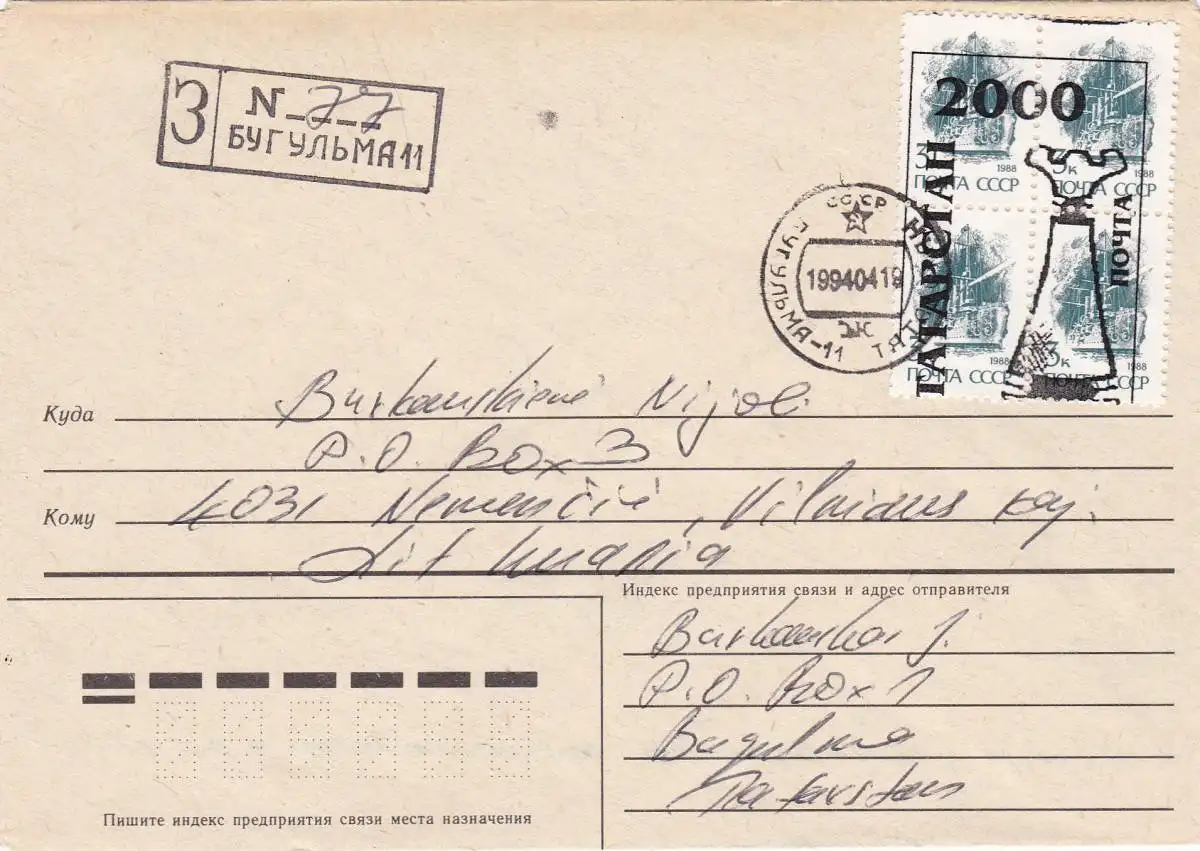 З
N 77
БУГУЛЬМА 11
2000
ТАТАРСТАН
ПОЧТА
3
1988
ПОЧТА СССР
3к
1988
ПОЧТА СССР
1988
ПОЧТА СССР
3к
1988
ПОЧТА СССР
СССР
БУГУЛЬМА-11
19940419
Куда
P.O. Box 3
Кому
4031 Nemenčinė, Vilniaus raj.
Lithuania
Индекс предприятия связи и адрес отправителя
P.O. Box 1
Bugulma
Tatarstan
Пишите индекс предприятия связи места назначения